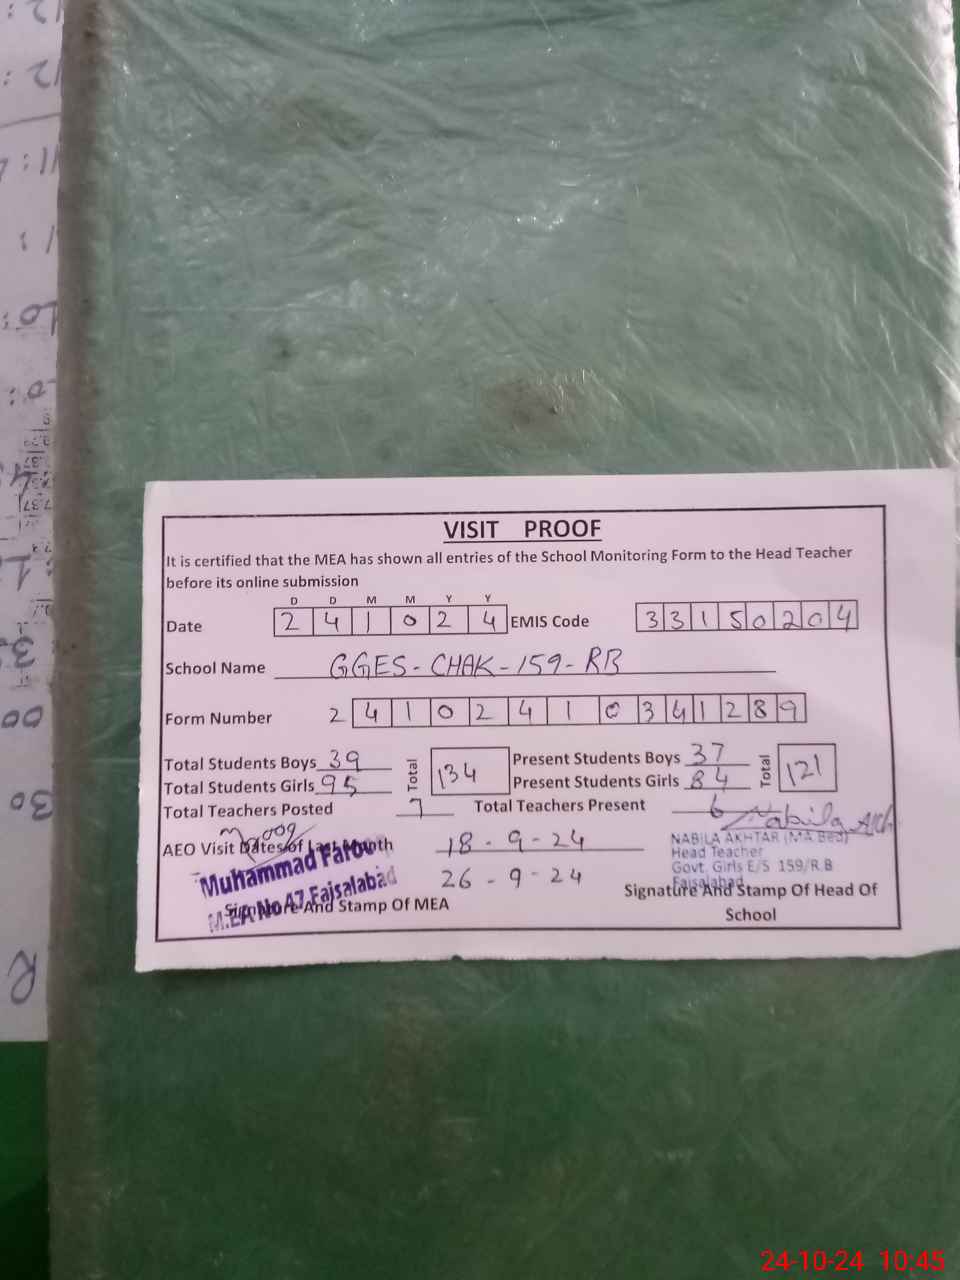 VISIT PROOF
It is certified that the MEA has shown all entries of the School Monitoring Form to the Head Teacher
before its online submission
D D M M Y Y
Date 2 4 1 0 2 4 EMIS Code 3 3 1 5 0 2 0 4
School Name GGES-CHAK-159-RB
Form Number 2 4 1 0 2 4 1 0 3 4 1 2 8 9
Total Students Boys 39 Total 134 Present Students Boys 37 Total 121
Total Students Girls 95 Present Students Girls 84
Total Teachers Posted 7 Total Teachers Present 6
Nabila
AEO Visit Dates of Last Month 18-9-24
26-9-24
Muhammad Farooq
M.EA No 47 Faisalabad
Signature And Stamp Of MEA
NABILA AKHTAR (MA Bed)
Head Teacher
Govt. Girls E/S 159/R.B
Faisalabad
Signature And Stamp Of Head Of
School
24-10-24 10:45